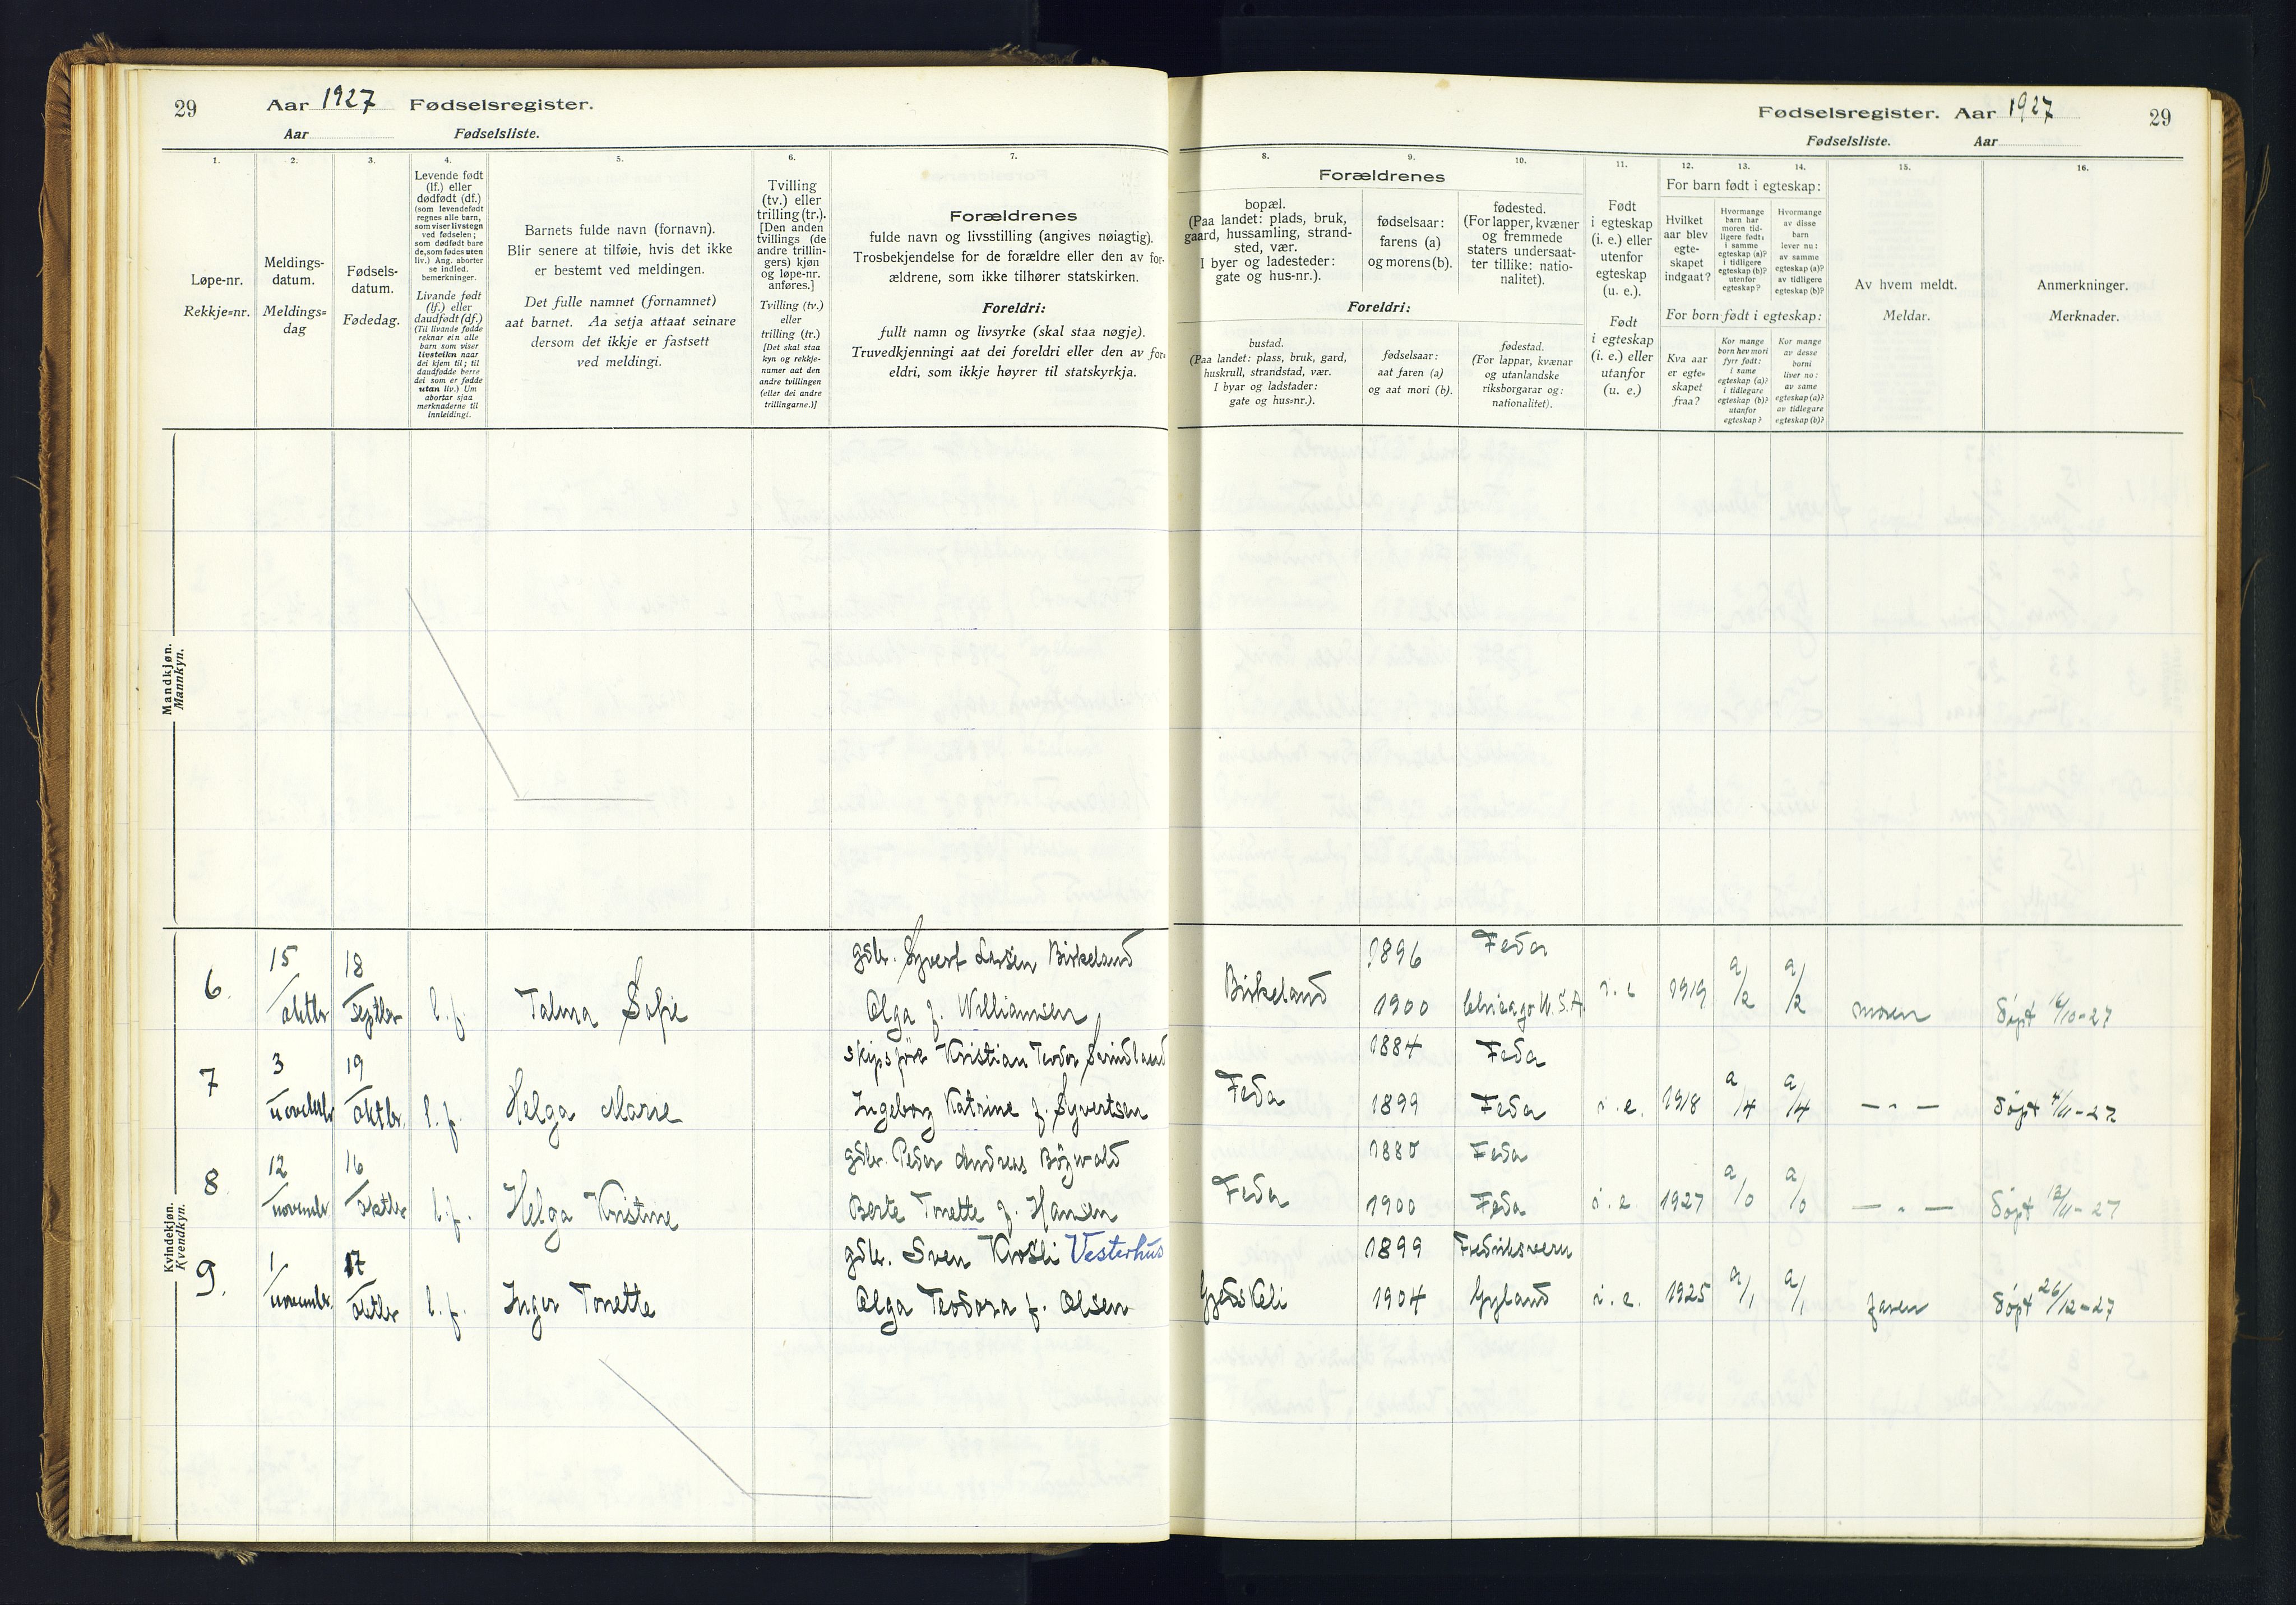 29
Aar 1927 Fødselsregister.
Aar Fødselsliste.
Fødselsregister. Aar 1927
29
Fødselsliste. Aar
1.
Løpe-nr.
Rekkje=nr.
2.
Meldings-
datum.
Meldings=
dag
3.
Fødsels-
datum.
Fødedag.
4.
Levende født
(lf.) eller
dødfødt (df.)
(som levendefødt
regnes alle barn,
som viser livstegn
ved fødselen;
som dødfødt bare
de, som fødes uten
liv.) Ang. aborter
se indled.
bemerkninger.
Livande født
(lf.) eller
daudfødt (df.)
(Til livande fødde
reknar ein alle
barn som viser
livsteikn naar
dei kjem til; til
daudfødde berre
dei som er fødde
utan liv.) Um
abortar sjaa
merknaderne til
innleidingi.
5.
Barnets fulde navn (fornavn).
Blir senere at tilføie, hvis det ikke
er bestemt ved meldingen.
Det fulle namnet (fornamnet)
aat barnet. Aa setja attaat seinare
dersom det ikkje er fastsett
ved meldingi.
6.
Tvilling
(tv.) eller
trilling (tr.).
[Den anden
tvillings (de
andre trillin-
gers) kjøn
og løpe-nr.
anføres.]
Tvilling (tv.)
eller
trilling (tr.)
[Det skal staa
kyn og rekkje-
numer aat den
andre tvillingen
(eller dei andre
trillingarne.)]
7.
Forældrenes
fulde navn og livsstilling (angives nøiagtig).
Trosbekjendelse for de forældre eller den av for-
ældrene, som ikke tilhører statskirken.
Foreldri:
fullt namn og livsyrke (skal staa nøgje).
Truvedkjenningi aat dei foreldri eller den av for-
eldri, som ikkje høyrer til statskyrkja.
Forældrenes
8.
bopæl.
(Paa landet: plads, bruk,
gaard, hussamling, strand-
sted, vær.
I byer og ladesteder:
gate og hus-nr.).
9.
fødselsaar:
farens (a)
og morens (b).
10.
fødested.
(For lapper, kvæner
og fremmede
staters undersaat-
ter tillike: natio-
nalitet).
Foreldri:
bustad.
(Paa landet: plass, bruk, gard,
huskrull, strandstad, vær.
I byar og ladstader:
gate og hus=nr.).
fødselsaar:
aat faren (a)
og aat mori (b).
fødestad.
(For lappar, kvænar
og utanlandske
riksborgarar og:
nationalitet).
11.
Født
i egteskap
(i. e.) eller
utenfor
egteskap
(u. e.).
Født
i egteskap
(i. e.) eller
utanfor
(u. e.)
For barn født i egteskap:
12.
Hvilket
aar blev
egte-
skapet
indgaat?
13.
Hvormange
barn har
moren tid-
ligere født:
i samme
egteskap (a)?
i tidligere
egteskap (b)?
utenfor
egteskap?
14.
Hvormange
av disse
barn
lever nu:
av samme
egteskap (a)?
av tidligere
egteskap (b)?
For born født i egteskap:
Kva aar
er egte=
skapet
fraa?
Kor mange
born hev mori
fyrr født:
i same
egteskap (a)?
i tidlegare
egteskap (b)?
utanfor
egteskap?
Kor mange
av desse
borni
liver no:
av same
egteskap (a)?
av tidlegare
egteskap (b)?
15.
Av hvem meldt.
Meldar.
16.
Anmerkninger.
Merknader.
Mandkjøn.
Mannkyn.
Kvindekjøn.
Kvendkyn.
6. 15/oktbr 18/septbr l.f. Talma Sofie gdbr. Syvert Larsen Birkeland 1896 Feda
Olga f. Williamsen Birkeland 1900 Chicago U.S.A. i. e 1919 a/2 a/2 moren døpt 16/10-27
7 3/novembr 19/oktbr. l.f. Helga Marie skipsfører Kristian Teodor Svindland 1884 Feda
Ingeborg Katrine f. Syvertsen Feda 1899 Feda i. e. 1918 a/4 a/4 — „ — døpt 4/11-27
8 12/november 16/oktbr l.f. Helga Kristine gdbr. Peder Andreas Bøgwald 1880 Feda
Berte Tonette f. Hansen Feda 1900 Feda i. e. 1927 a/0 a/0 — „ — døpt 12/11-27
9. 1/november 17/oktbr l.f. Inger Tonette gdbr. Sven Kvosli Vesterhus 1899 Fredriksvern
Olga Teodora f. Olsen 1904 Gyland i. e. 1925 a/1 a/1 faren døpt 26/12-27